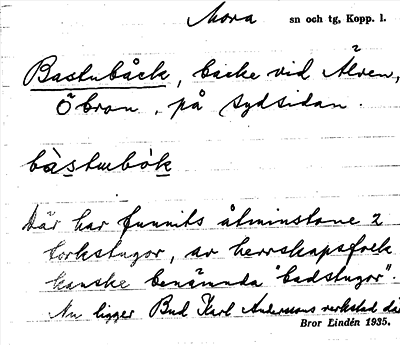 Mora sn och tg, Kopp. l.
Bastubåck, backe vid Älven,
Öbron, på sydsidan.
bàstubòk
Där har funnits åtminstone 2
torkstugor, av herrskapsfolk
kanske benämnda "badstugor".
Nu ligger Bud Karl Anderssons verkstad där
Bror Lindén 1935.